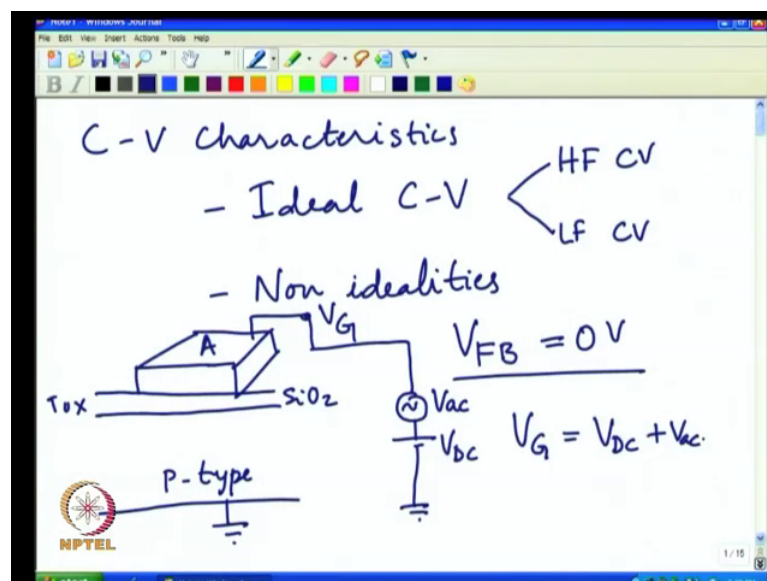 Note1 - Windows Journal
File Edit View Insert Actions Tools Help
B I
C-V Characteristics
- Ideal C-V
HF CV
LF CV
- Non idealities
A
VG
VFB = 0 V
Tox
SiO2
Vac
VDC
VG = VDC + Vac.
P-type
NPTEL
1 / 15
start